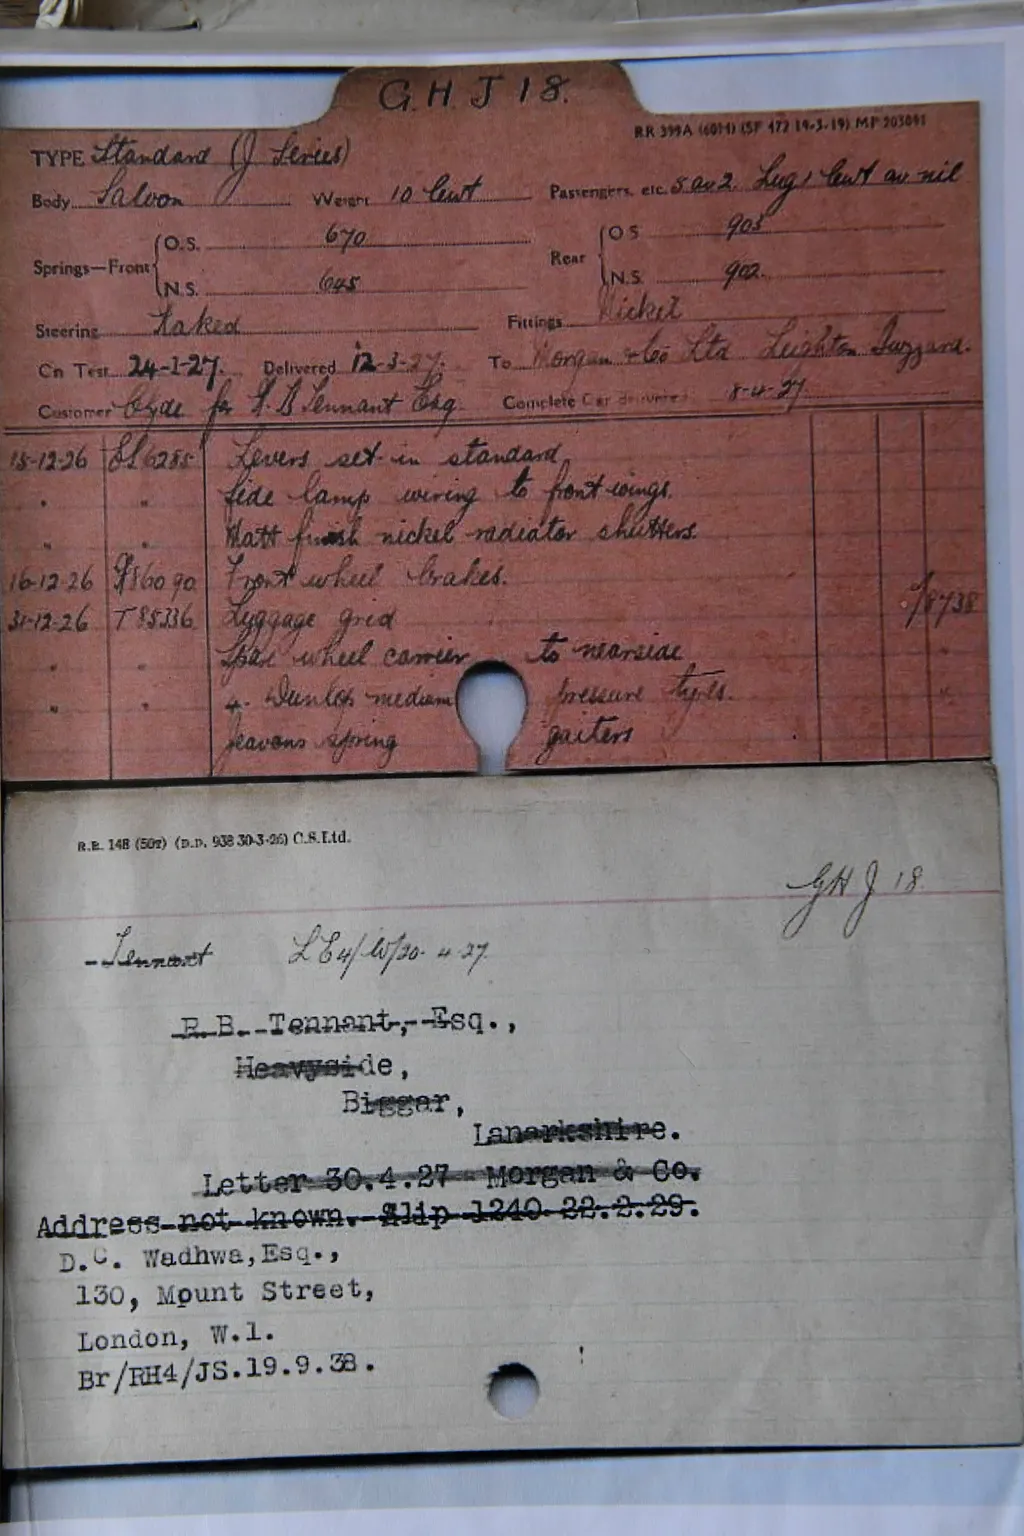 G.H.J 18.
RR 399A (601H) (SF 477 19-3-19) MP 203091
TYPE Standard (J Series)
Body Saloon Weight 10 Cwt Passengers, etc. 5 av 2. Lug 1 Cwt av nil
Springs—Front O.S. 670 Rear O.S. 903
N.S. 645 N.S. 902.
Steering Raked Fittings Nickel
On Test 24-1-27. Delivered 12-3-27. To Morgan & Co Ltd Leighton Buzzard.
Customer Clyde for R B Tennant Esq. Complete Car delivered 8-4-27.
15-12-26 6285 Levers set in standard
" " Side lamp wiring to front wings.
" " Matt finish nickel radiator shutters.
16-12-26 86090 Front wheel brakes.
31-12-26 T 85336 Luggage grid 8738
" " Spare wheel carrier to nearside "
" " 4. Dunlop medium pressure tyres. "
Jeavons spring gaiters
R.R. 148 (50T) (D.D. 938 30-3-26) C.S.Ltd.
GHJ 18
Tennant LE4/W/20-4-27
R.B. Tennant, Esq.,
Heavyside,
Biggar,
Lanarkshire.
Letter 30.4.27 - Morgan & Co.
Address not known. Slip 1240 22.2.29.
D.C. Wadhwa, Esq.,
130, Mount Street,
London, W.1.
Br/RH4/JS.19.9.38.